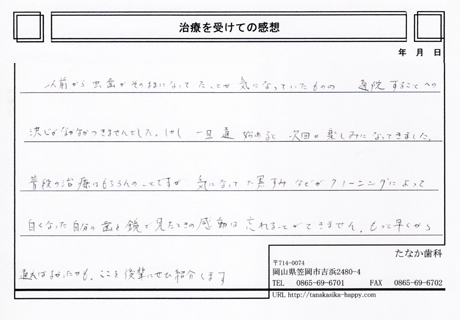 治療を受けての感想
年 月 日
以前から虫歯がそのままになってたことが気になっていたものの 通院することへの
決心がなかなかつきませんでした。しかし 一旦通 始めると 次回が楽しみになってきました。
普段の治療はもちろんのことですが 気になってた黒ずみなどがクリーニングによって
白くなった自分の歯を鏡で見たときの感動は忘れることができません。もっと早くから
通えばよかったかも。ここを後輩にぜひ紹介します
たなか歯科
〒714-0074
岡山県笠岡市吉浜2480-4
TEL 0865-69-6701 FAX 0865-69-6702
URL http://tanakasika-happy.com